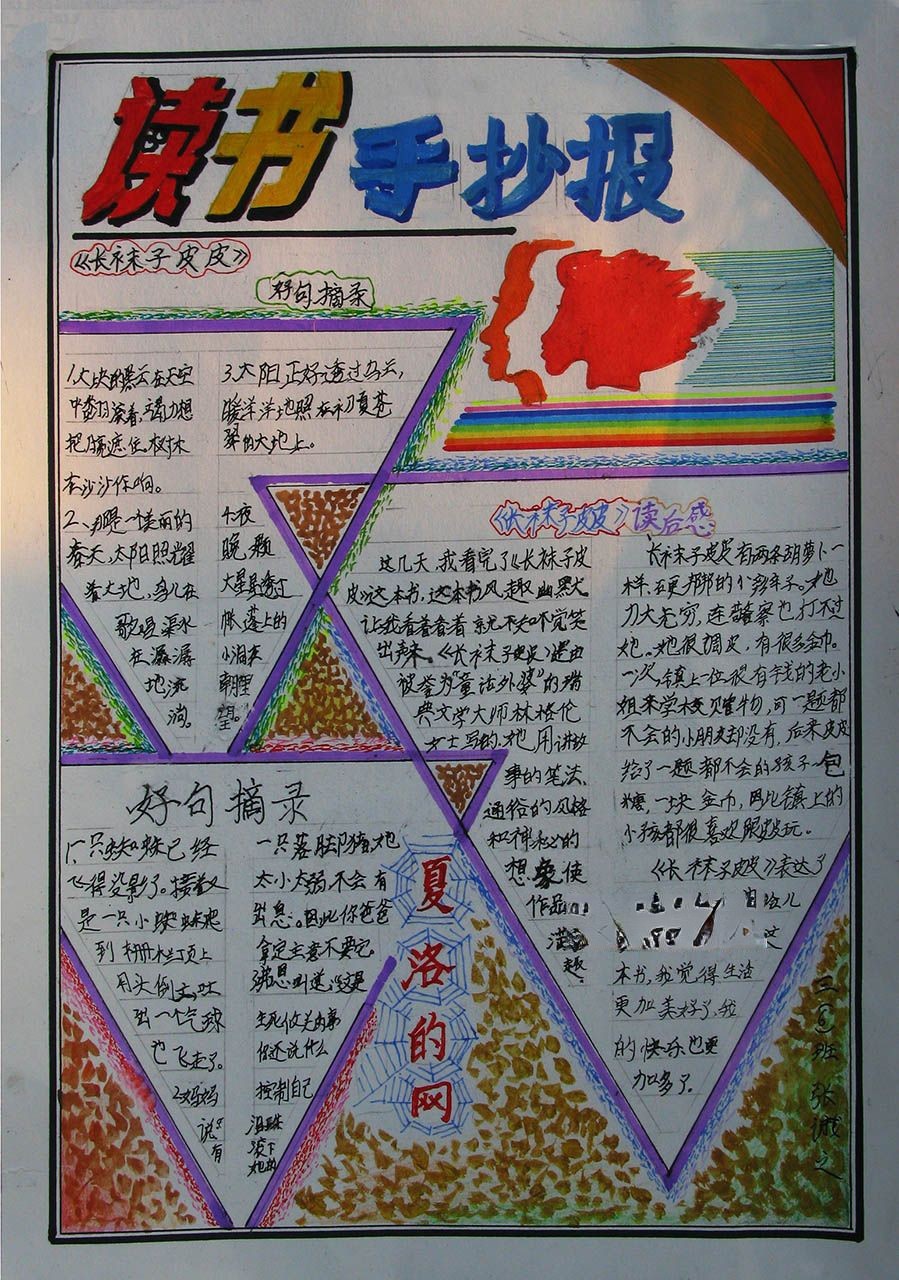 读书手抄报
《长袜子皮皮》
好句摘录
1.大块的黑云在天空
中翻滚着,竭力想
把月亮遮住。树林
在沙沙作响。
2、那是一个美丽的
春天,太阳照耀
着大地,鸟儿在
歌唱渠水
在潺潺
地流
淌。
3.太阳正好透过乌云,
暖洋洋地照在初夏苍
翠的大地上。
4、夜
晚,一颗
大星星透过
帐篷上的
小洞向里
朝望。
《长袜子皮皮》读后感
这几天,我看完了《长袜子皮
皮》这本书,这本书风趣幽默
让我看着看着就不知不觉笑
出声来。《长袜子皮皮》是由
被誉为“童话外婆”的瑞
典文学大师林格伦
女士写的,她用讲故
事的笔法、
通俗的风格
和神秘的
想象使
作品
趣。
长袜子皮皮有两条胡萝卜一
样,在硬邦邦的小辫子。她
力大无穷,连警察也打不过
她。她很调皮,有很多金币。
一次,镇上一位很有钱的老小
姐来学校赠物,可一题都
不会的小朋友却没有,后来皮皮
给了一题都不会的孩子一包
糖、一块金币,因此镇上的
小孩都很喜欢跟皮皮玩。
《长袜子皮皮》表达了
本书,我觉得生活
更加美好了,我
的快乐也更
加多了。
好句摘录
1、一只蜘蛛已经
飞得没影了。接着又
是一只小蜘蛛爬
到栅栏顶上
用头倒立,吐
出一个气球
也飞走了。
2妈妈
说:“有
一只落脚猪,她
太小太弱,不会有
出息。因此你爸爸
拿定主意不要它。
生死攸关的事
你还说什么
控制自己
泪珠
滚下
她的
夏洛的网
三⑥班 张诚之